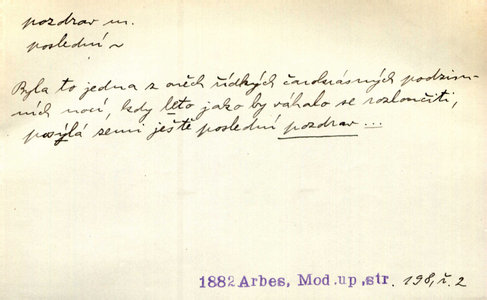 pozdrav m.
poslední ~
Byla to jedna z oněch řídkých čarokrásných podzim-
ních nocí, kdy léto jako by váhalo se rozloučiti,
posýlá zemi ještě poslední pozdrav ...
1882 Arbes, Mod.up.,str. 198, ř. 2